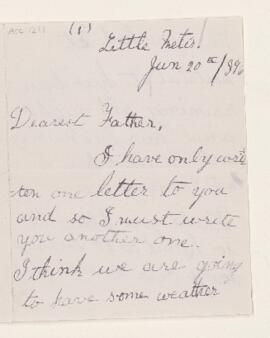 ACC 1211
(1)
Little Metis.
Jun 20th/89.
Dearest Father,
I have only writ
=ten one letter to you
and so I must write
you another one.
I think we are going
to have some weather